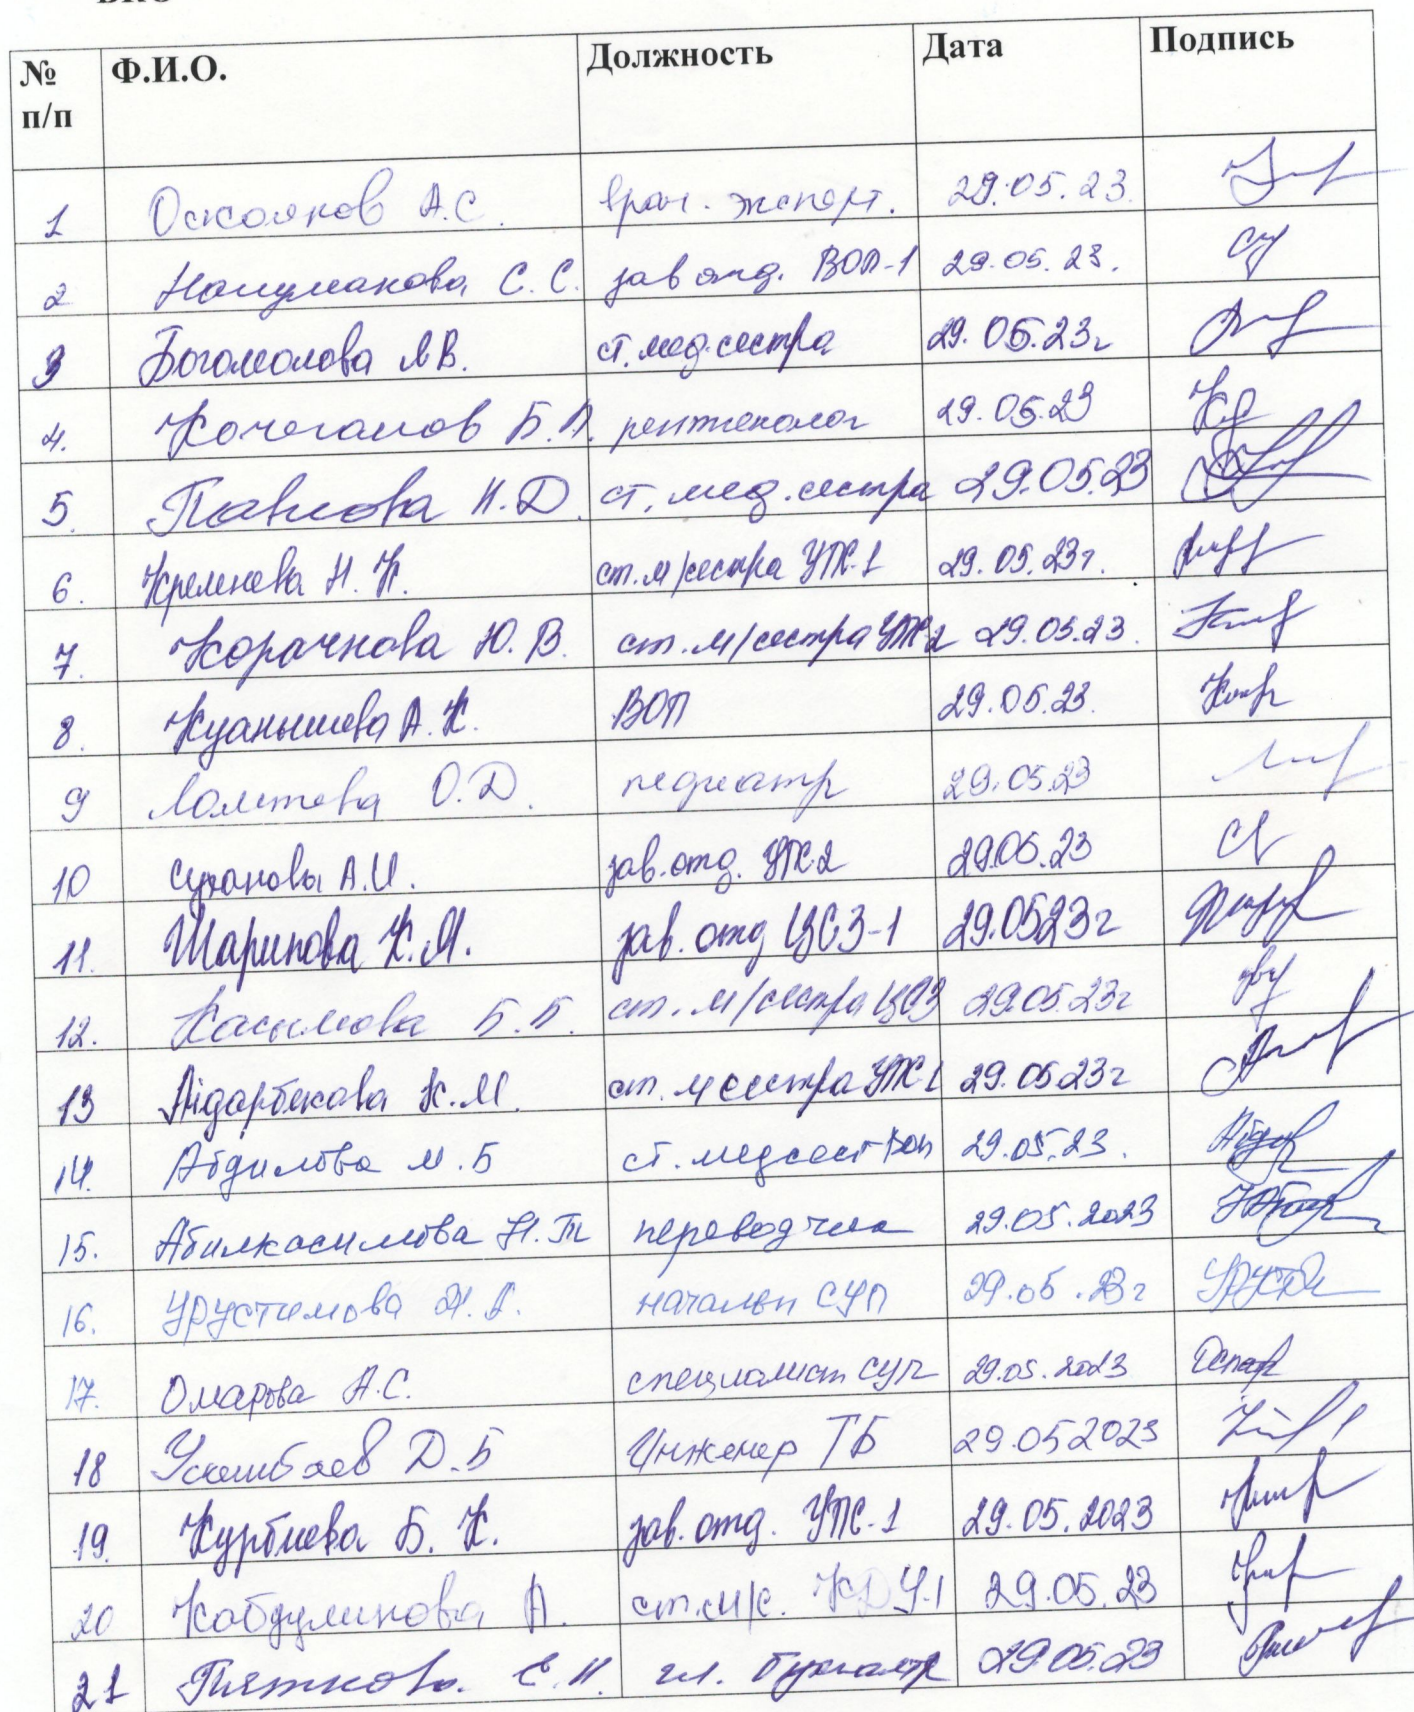 № Ф.И.О. Должность Дата Подпись
п/п
1 Оскояков А.С. врач. эксперт. 29.05.23.
2 Нагуманова С.С. зав отд. ВОП-1 29.05.23.
3 Богомолова Л.В. ст. мед.сестра 29.05.23г
4. Кочегамов Б.А. рентгенолог 29.05.23
5. Павлова Н.Д. ст. мед. сестра 29.05.23
6. Кременева Н.К. ст. м/сестра УПК-1 29.05.23г.
7. Корачкова Ю.В. ст. м/сестра УПК-2 29.05.23.
8. Куанышева А.К. ВОП 29.05.23.
9 О.Д. педиатр 29.05.23
10 Суханова А.И. зав. отд. УПК2 29.05.23
11. Шарипова К.М. зав. отд ЦСЗ-1 29.0523г
12. Касымова Б.Б. ст. м/сестра ЦСЗ 29.05.23г
13 Айдарбекова К.М. ст. м сестра УПК-1 29.05.23г
14. Абдилова М.Б ст. медсест ВОП 29.05.23.
15. Абилкасимова Н.Т переводчик 29.05.2023
16. Урустимова начальн СУП 29.05.23г
17. Омарова А.С. специалист СУП 29.05.2023
18 Усембаев Д.Б Инженер ТБ 29.05 2023
19. Курбиева Б.К. зав. отд. УПК-1 29.05.2023
20 Кабдулинова А. ст. м/с. КДУ-1 29.05.23
21 Пяткова Е.Н. гл. бухгалтер 29.05.23